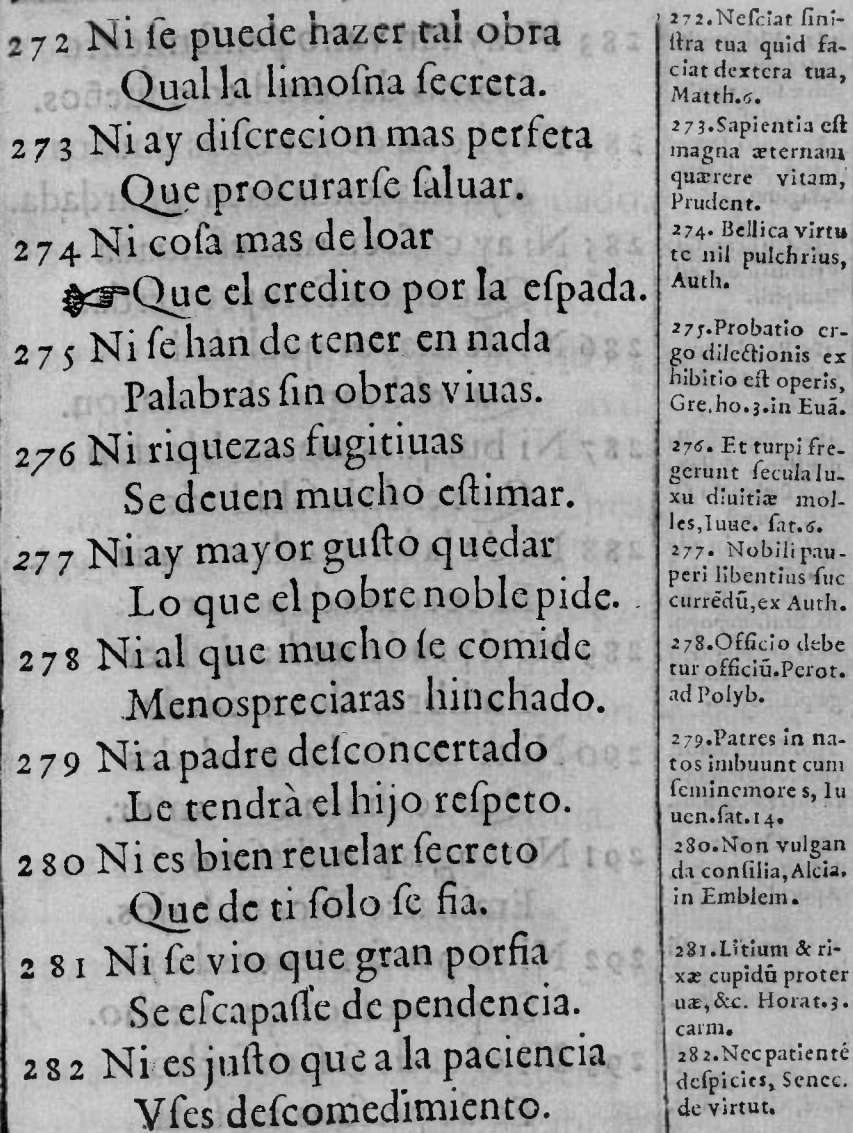 272 Ni ſe puede hazer tal obra
Qual la limoſna ſecreta.
273 Ni ay diſcrecion mas perfeta
Que procurarſe ſaluar.
274 Ni coſa mas de loar
☞Que el credito por la eſpada.
275 Ni ſe han de tener en nada
Palabras ſin obras viuas.
276 Ni riquezas fugitiuas
Se deuen mucho eſtimar.
277 Ni ay mayor guſto quedar
Lo que el pobre noble pide.
278 Ni al que mucho ſe comide
Menospreciaras hinchado.
279 Ni a padre deſconcertado
Le tendrà el hijo reſpeto.
280 Ni es bien reuelar ſecreto
Que de ti ſolo ſe fia.
281 Ni ſe vio que gran porfia
Se eſcapaſſe de pendencia.
282 Ni es juſto que a la paciencia
Vſes deſcomedimiento.
272.Neſciat ſini-
ſtra tua quid fa-
ciat dextera tua,
Matth.6.
273.Sapientia eſt
magna æternam
quærere vitam,
Prudent.
274. Bellica virtu
te nil pulchrius,
Auth.
275.Probatio er-
go dilectionis ex
hibitio eſt operis,
Gre.ho.3.in Euã.
276. Et turpi fre-
gerunt ſecula lu-
xu diuitiæ mol-
les,Iuue. ſat.6.
277. Nobili pau-
peri libentius ſuc
currẽdũ,ex Auth.
278.Officio debe
tur officiũ.Perot.
ad Polyb.
279.Patres in na-
tos imbuunt cum
ſemine mores, Iu
uen.ſat.14.
280.Non vulgan
da conſilia, Alcia.
in Emblem.
281.Litium & ri-
xæ cupidũ proter
uæ,&c. Horat.3.
carm.
282.Nec patientẽ
deſpicies, Senec.
de virtut.